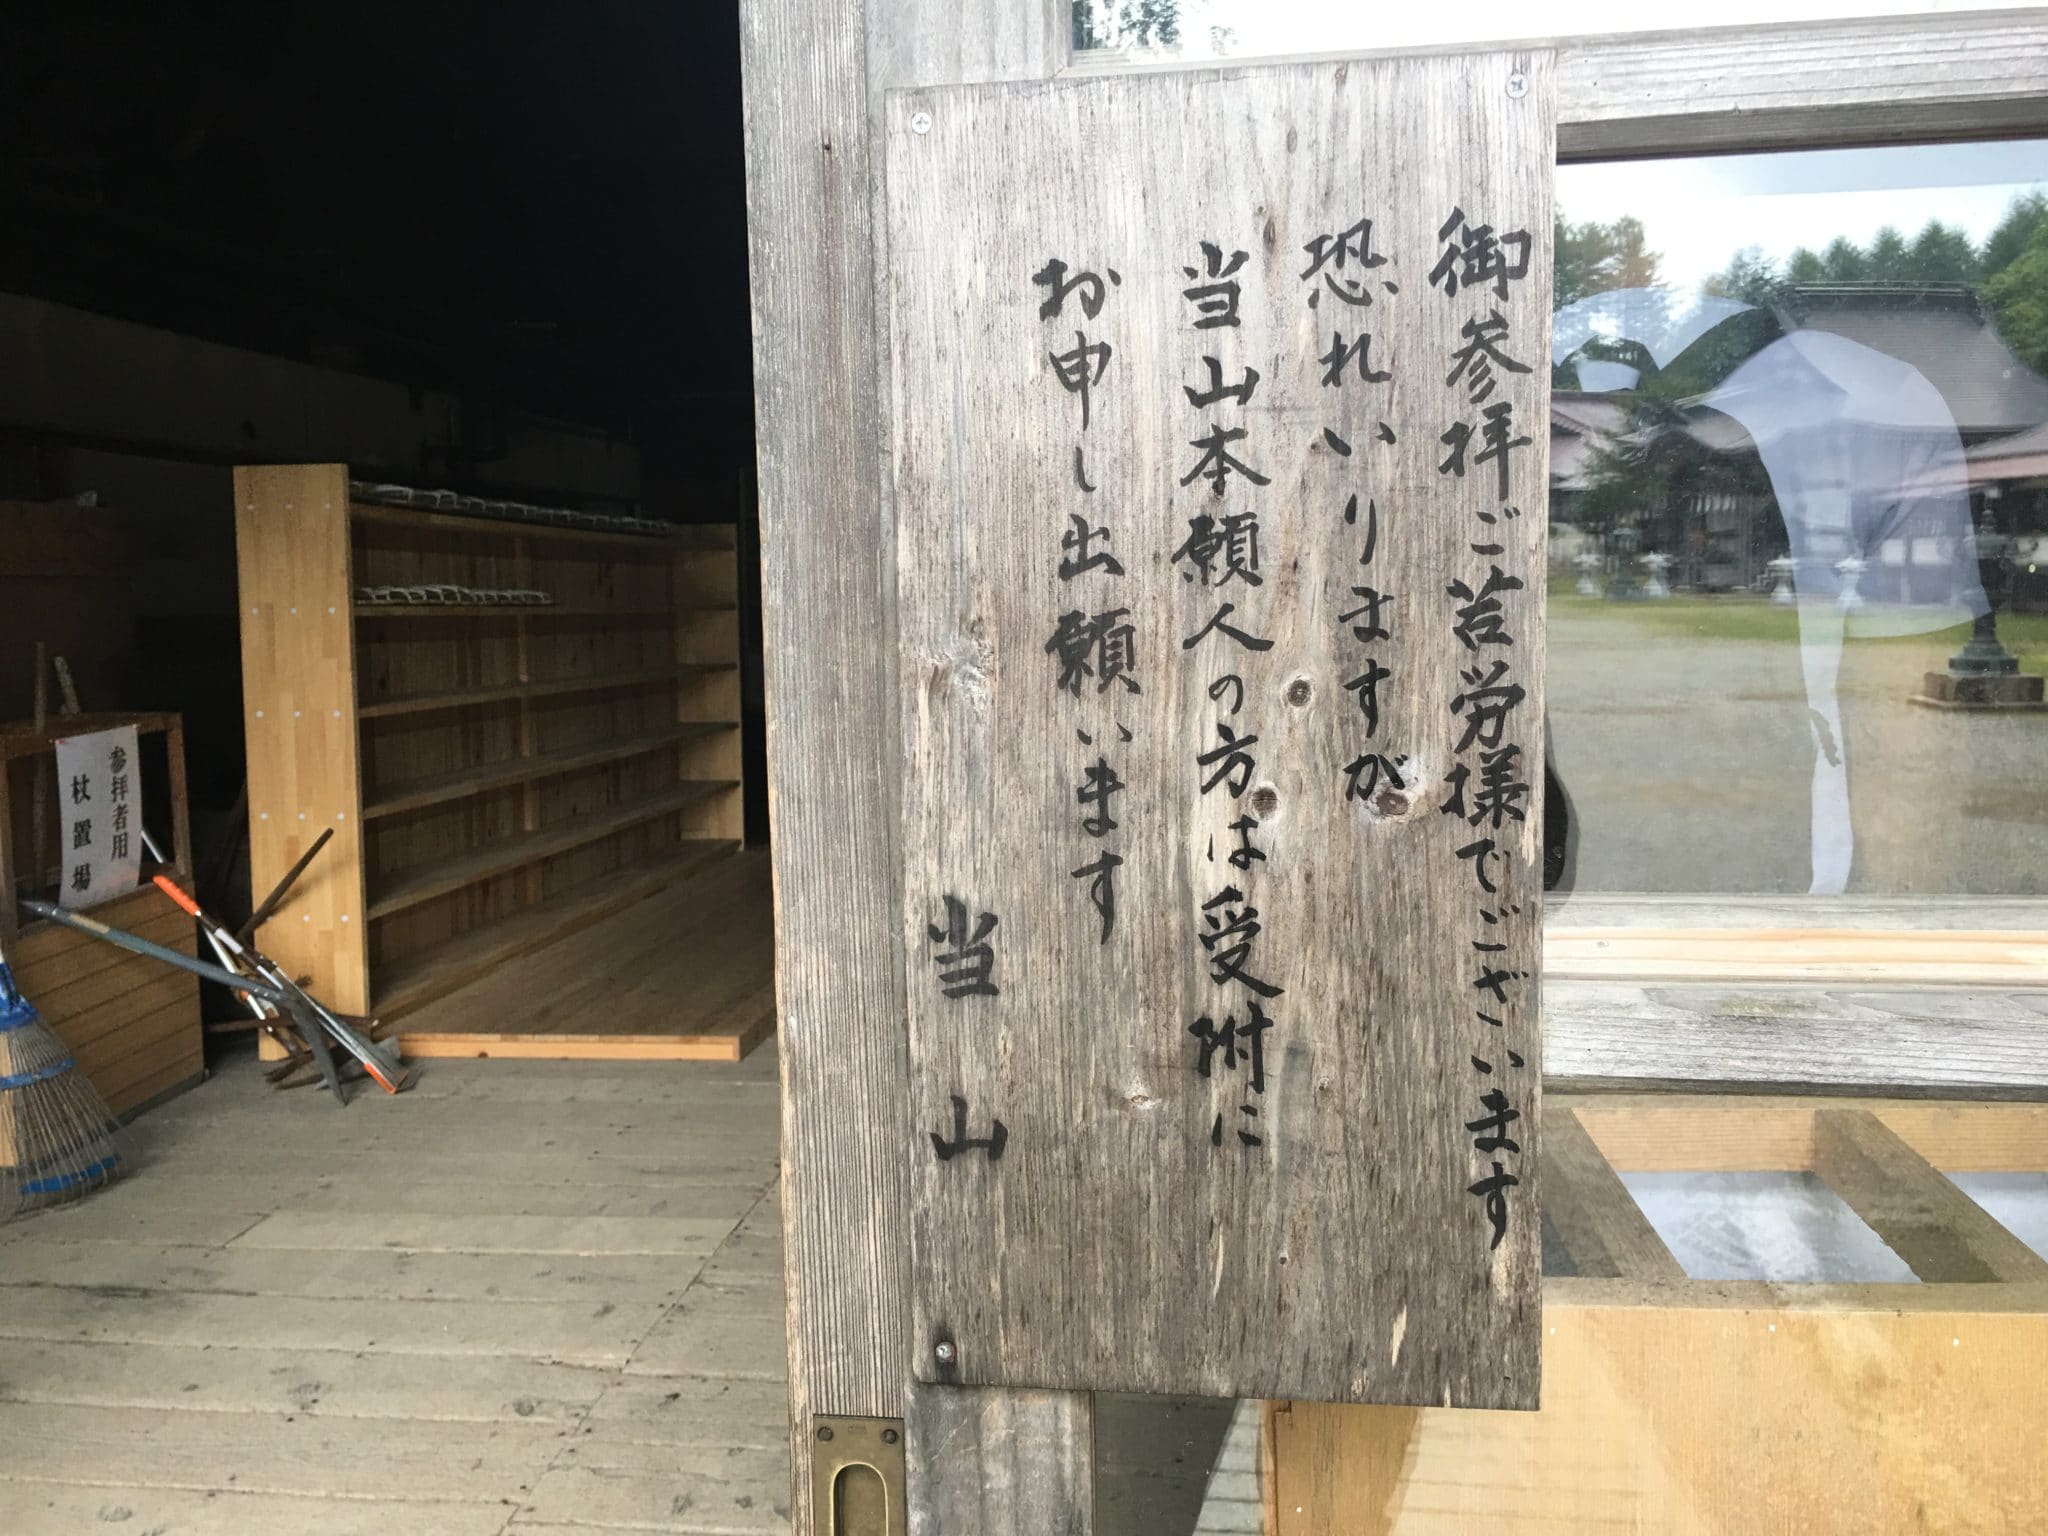 御参拝ご苦労様でございます
恐れいりますが
当山本願人の方は受附に
お申し出願います
当山
参拝者用
杖置場